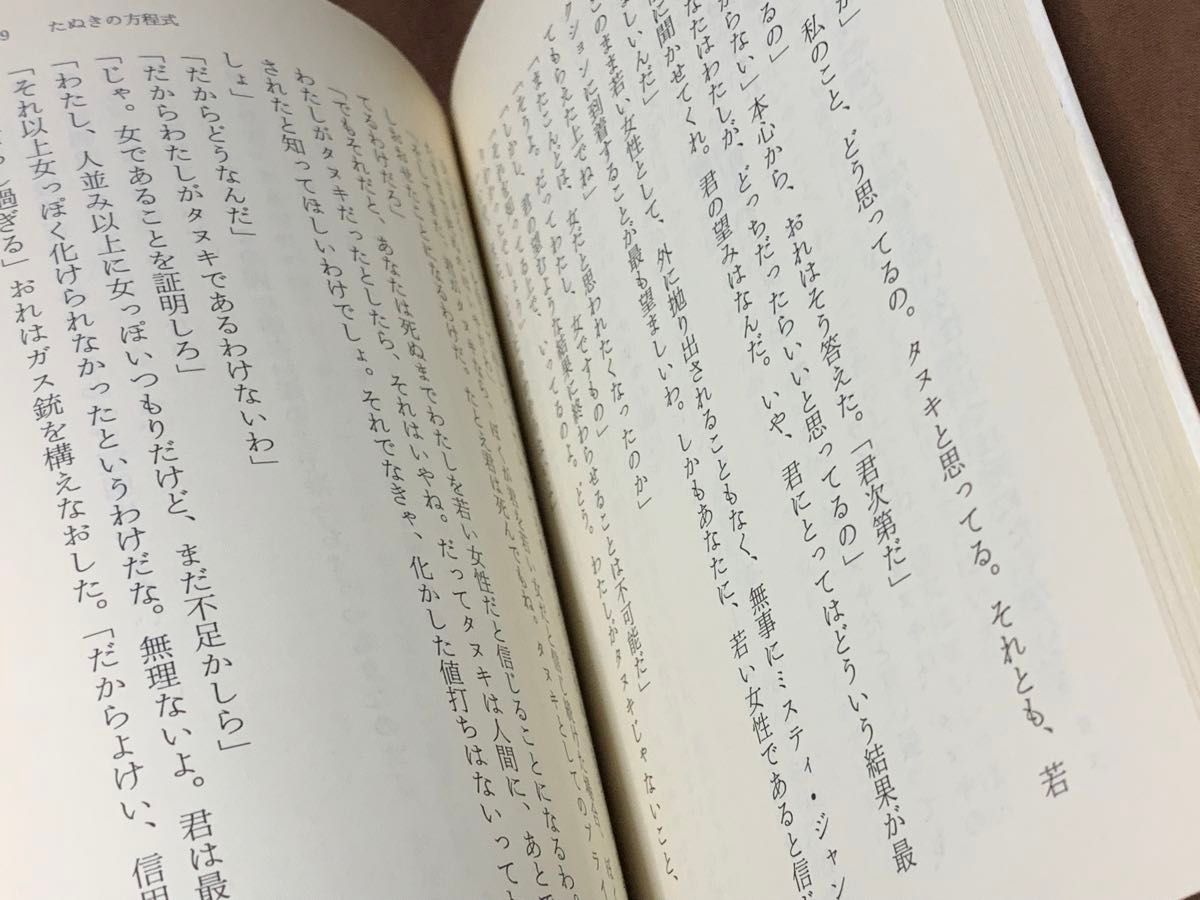 か」
私のこと、どう思ってるの。タヌキと思ってる。それとも、若
るの」
からない」本心から、おれはそう答えた。「君次第だ」
なたはわたしが、どっちだったらいいと思ってるの」
に聞かせてくれ。君の望みはなんだ。いや、君にとってはどういう結果が最
ましいんだ」
このまま若い女性として、外に拋り出されることもなく、無事にミスティ・ジャン
クションに到着することが最も望ましいわ。しかもあなたに、若い女性であると信
てもらえた上でね」
「またこんどは、女だと思われたくなったのか」
「そうよ。だってわたし、女ですもの」
「しかし、君の望むような結果に終わらせることは不可能だ」
いってるのよ。どう。わたしがタヌキじゃないこと、
てるわけだろ」
「でもそれだと、あなたは死ぬまでわたしを若い女性だと信じることになるわ。
わたしがタヌキだったとしたら、それはいやね。だってタヌキは人間に、あとで
されたと知ってほしいわけでしょ。それでなきゃ、化かした値打ちはないって
しょ」
「だからどうなんだ」
「だからわたしがタヌキであるわけないわ」
「じゃ。女であることを証明しろ」
「わたし、人並み以上に女っぽいつもりだけど、まだ不足かしら」
「それ以上女っぽく化けられなかったというわけだな。無理ないよ。君は最
過ぎる」おれはガス銃を構えなおした。「だからよけい、信用
9 たぬきの方程式